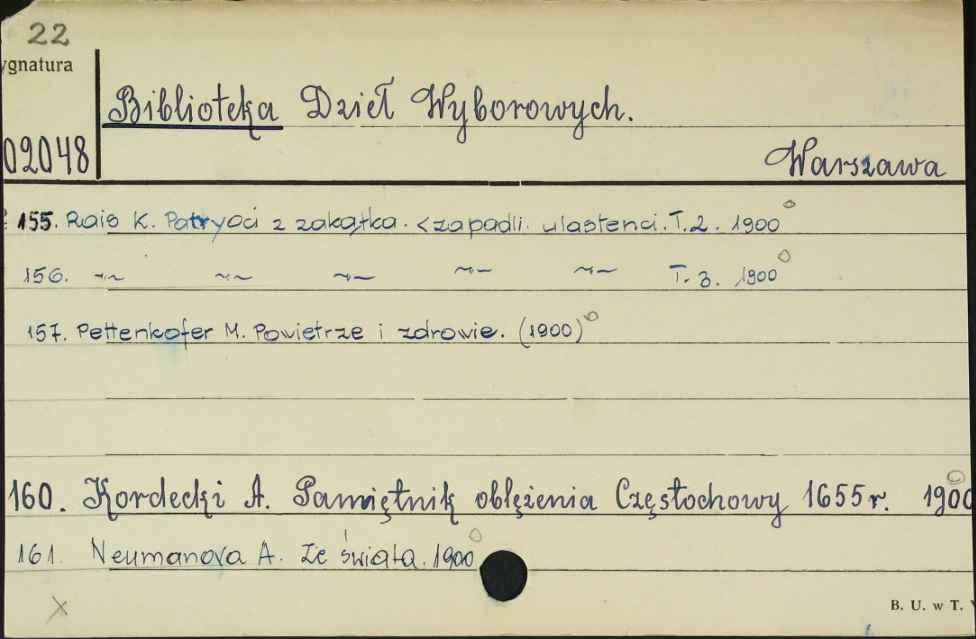 22
ygnatura
Biblioteka Dzieł Wyborowych.
02048
Warszawa
155. Rais K. Patryoci z zakątka. <zapadli. ulastenci. T. 2. 1900
156. -"- -"- -"- -"- -"- T. 3. 1900
157. Pettenkofer M. Powietrze i zdrowie. (1900)
160. Kordecki A. Pamiętnik oblężenia Częstochowy 1655 r. 1900
161. Neumanova A. Ze świata. 1900
x
B. U. w T.